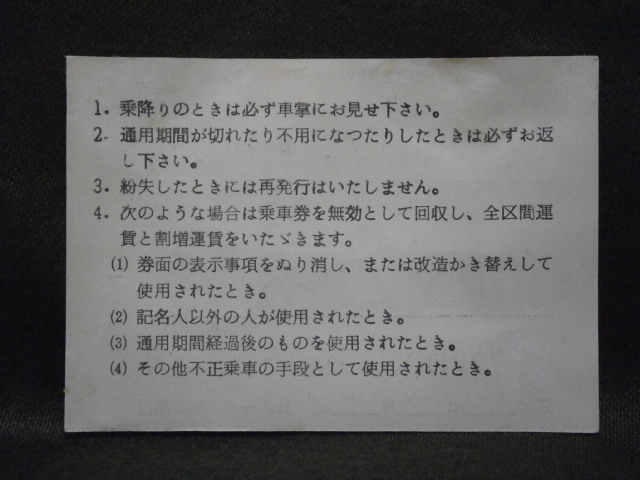 1. 乗降りのときは必ず車掌にお見せ下さい。
2. 通用期間が切れたり不用になつたりしたときは必ずお返
し下さい。
3. 紛失したときには再発行はいたしません。
4. 次のような場合は乗車券を無効として回収し、全区間運
賃と割増運賃をいたゞきます。
(1) 券面の表示事項をぬり消し、または改造かき替えして
使用されたとき。
(2) 記名人以外の人が使用されたとき。
(3) 通用期間経過後のものを使用されたとき。
(4) その他不正乗車の手段として使用されたとき。